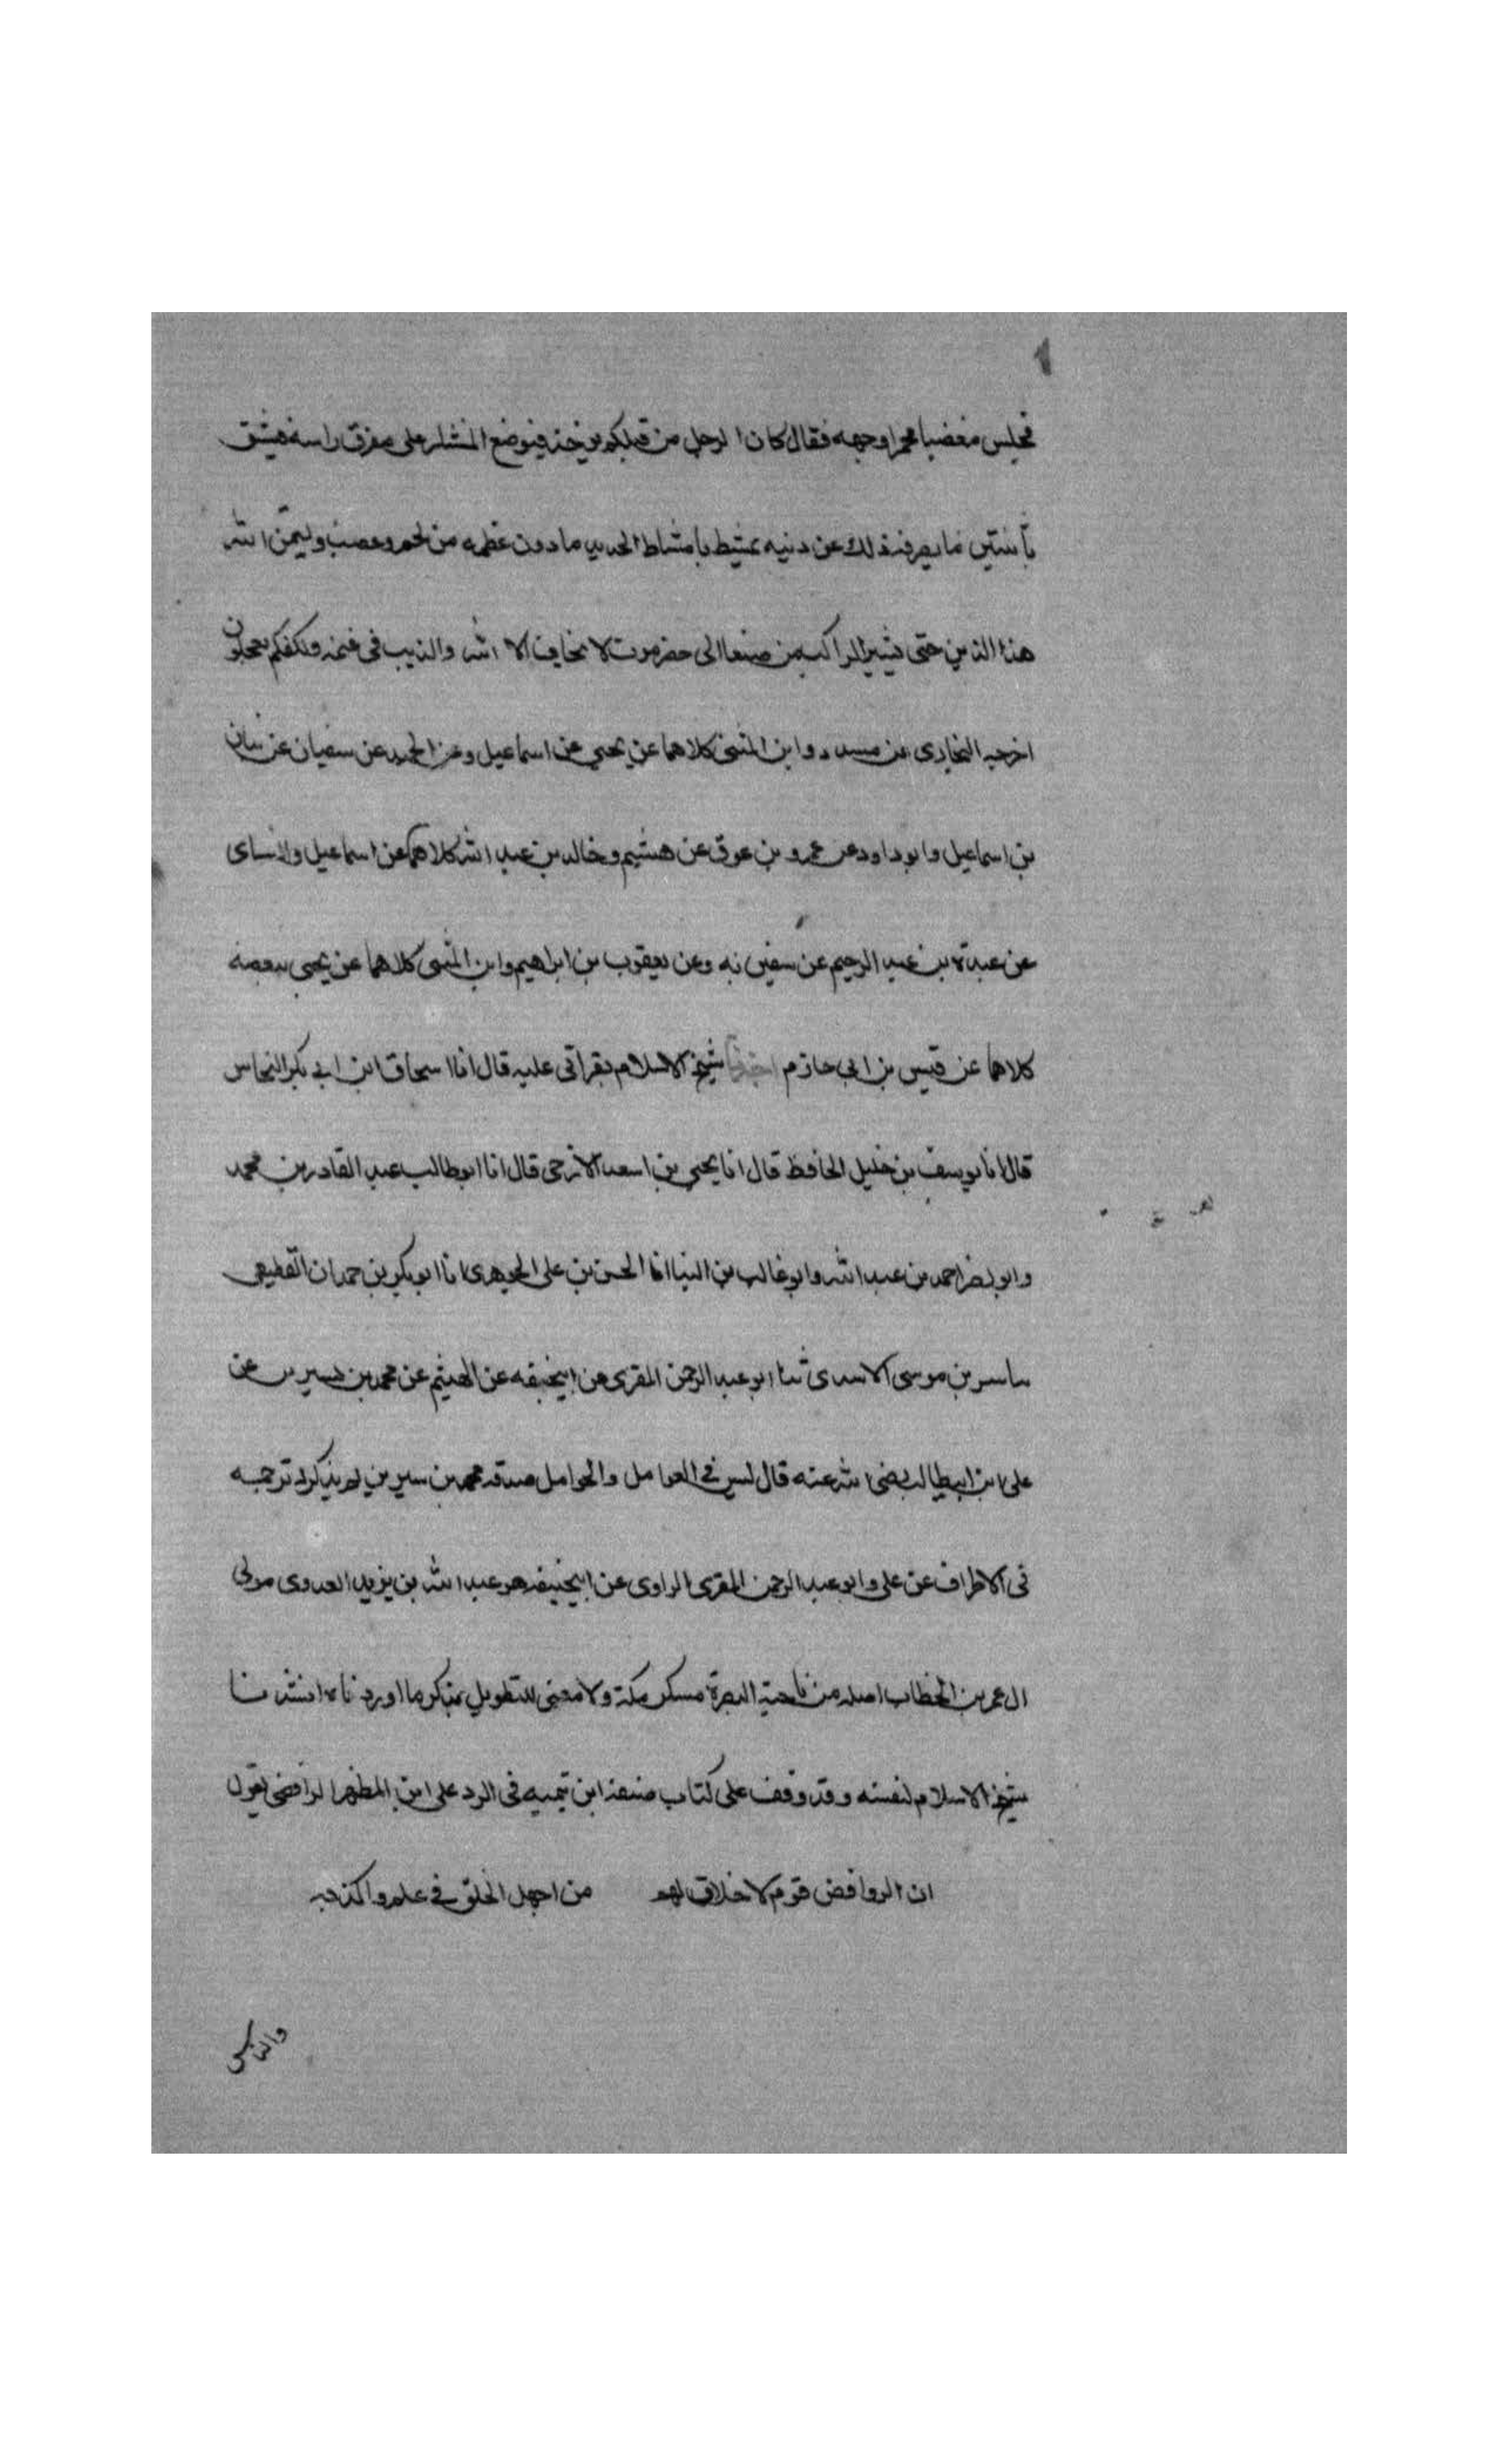 فجلس مغضبا محمرا وجهه فقال كان الرجل من قبلكم يوخذ فيوضع المنشار على مفرق راسه فيشق
باثنتين ما يصرفه ذلك عن دينه يمشط بامشاط الحديد ما دون عظمه من لحم وعصب وليتمن الله
هذا الدين حتى يسير الراكب من صنعا الى حضرموت لا يخاف الا الله والذيب في غنمه ولكنكم تعجلون
اخرجه البخاري عن مسدد وابن المثنى كلاهما عن يحيى عن اسماعيل وعن الحميدي عن سفيان عن بيان
بن اسماعيل وابو داود عن عمرو بن عوق عن هشيم وخالد بن عبد الله كلاهما عن اسماعيل والنساى
عن عبدة بن عبد الرحيم عن سفين به وعن يعقوب بن ابراهيم وابن المثنى كلاهما عن يحيى ببعضه
كلاهما عن قيس بن ابي حازم اخبرنا شيخ الاسلام بقراتى عليه قال انا اسحاق ابن ابي بكر النحاس
قال انا يوسف بن خليل الحافظ قال انا يحيى بن اسعد الازجى قال انا ابو طالب عبد القادر بن محمد
وابو نصر احمد بن عبد الله وابو غالب بن البنا انا الحسن بن على الجوهرى انا ابو بكر بن حمدان القطيعى
بن موسى الاسدى ثنا ابو عبد الرحمن المقرى عن ابيحنيفه عن الهيثم عن محمد بن سيرين عن
على ابن ابيطالب رضى الله عنه قال ليس في العوامل والحوامل صدقه محمد بن سيرين لم يذكر له ترجمه
فى الاطراف عن على وابو عبد الرحمن المقرى الراوى عن ابيحنيفه هو عبد الله بن يزيد العدوى مولى
ال عمر بن الخطاب اصله من ناحية البصرة مسكن مكة ولا معنى للتطويل بذكر ما اوردناه انشدنا
شيخ الاسلام لنفسه وقد وقف على كتاب صنفه ابن تيميه فى الرد على ابن المطهر الرافضى يقول
ان الروافض قوم لا خلاق لهم من اجهل الخلق في علم واكذبه